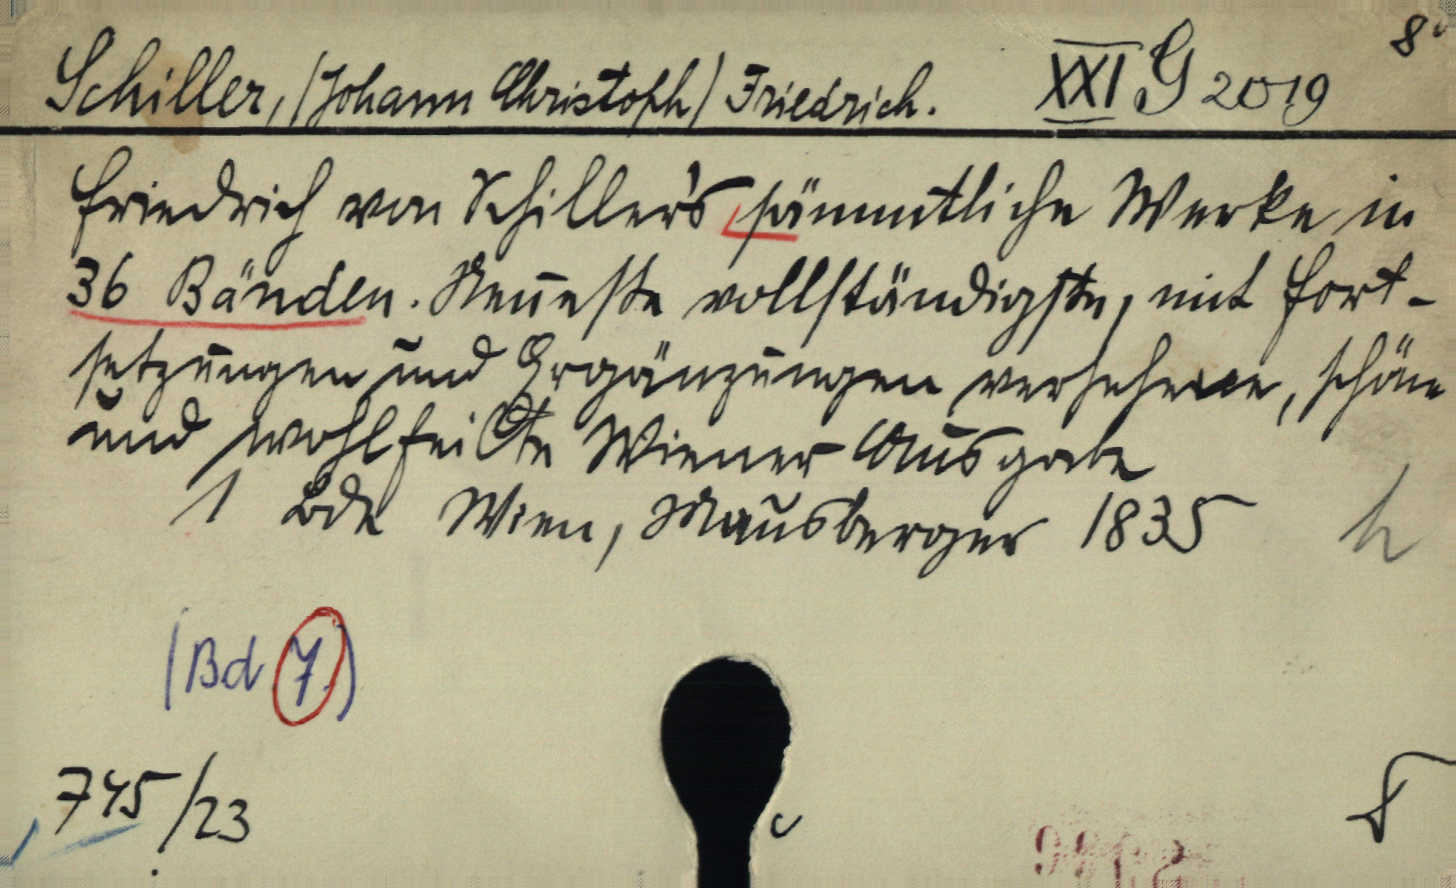 8°
Schiller, (Johann Christoph) Friedrich. XXI G 2019
Friedrich von Schiller's sämmtliche Werke in
36 Bänden. Neueste vollständigste, mit Fort-
setzungen und Ergänzungen versehene, schöne
und wohlfeilste Wiener Ausgabe
1 Bde Wien, Mausberger 1835
(Bd 7.)
745/23